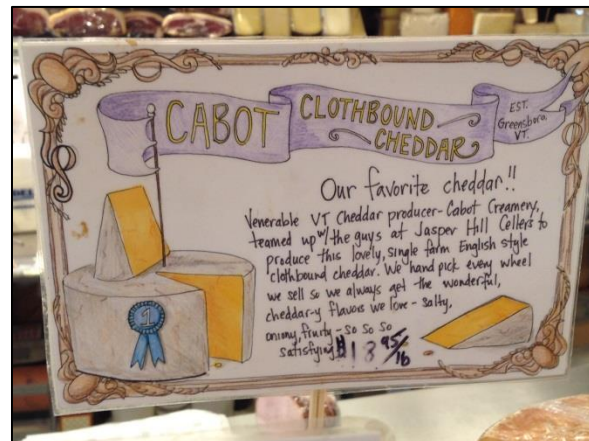 CABOT CLOTHBOUND
CHEDDAR
EST.
Greensboro,
VT.
Our favorite cheddar!!
Venerable VT Cheddar producer- Cabot Creamery,
teamed up w/ the guys at Jasper Hill Cellers to
produce this lovely, single farm English style
clothbound cheddar. We hand pick every wheel
we sell so we always get the wonderful,
cheddar-y flavors we love - salty,
oniony, fruity - so so so
satisfying! $18 95/lb
1